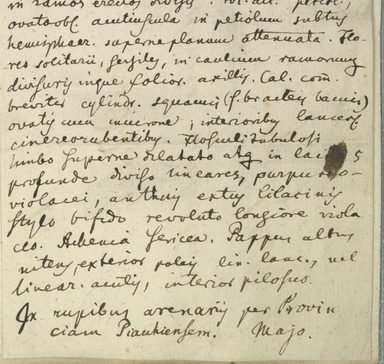 in ramos erectos divisus. Fol. alt. petiol.,
ovato obl. acutiuscula in petiolum subtus
hemisphaer. superne planum attenuata. Flo-
res solitarii, sessiles, in caulium ramorumq
divisuris inque folior. axillis. Cal. com.
breviter cylindr. squamis (s. bracteis)
ovatis cum mucrone, interioribus lanceol.
cinereo rubentibus. Flosculi tubulosi
limbo superne dilatato atq in lac 5
profunde diviso lineares, purpureo-
violacei, antheris extus lilacinis
stylo bifido revoluto longiore viola
ceo. Achenia sericea. Pappus albus
nitens, exterior paleis lin. lanc., vel
linear. acutis, interior pilosus.
In rupibus arenariis per Provin
ciam Piauhiensem. Majo.